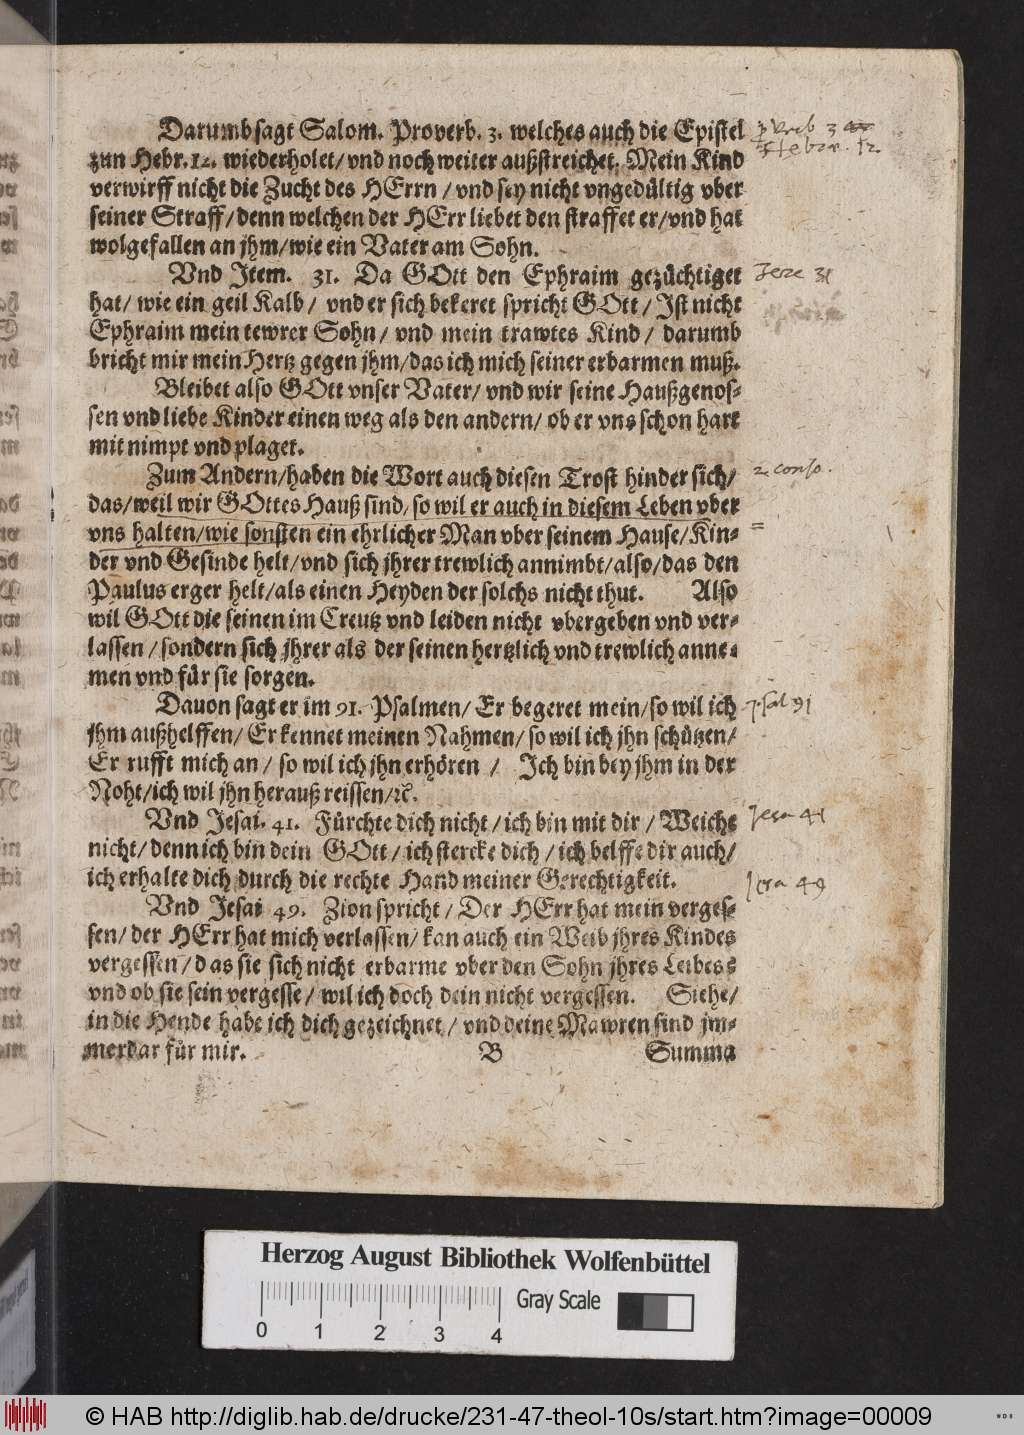 Darumb sagt Salom. Proverb. 3. welches auch die Epistel
zun Hebr. 12. wiederholet/ vnd noch weiter außstreichet, Mein Kind
verwirff nicht die Zucht des HErrn / vnd sey nicht vngedültig vber
seiner Straff/ denn welchen der HErr liebet den straffet er/ vnd hat
wolgefallen an jhm/ wie ein Vater am Sohn.
Vnd Jtem. 31. Da GOtt den Ephraim gezüchtiget
hat/ wie ein geil Kalb / vnd er sich bekeret spricht GOtt / Jst nicht
Ephraim mein tewrer Sohn / vnd mein trawtes Kind / darumb
bricht mir mein Hertz gegen jhm/ das ich mich seiner erbarmen muß.
Bleibet also GOtt vnser Vater/ vnd wir seine Haußgenos-
sen vnd liebe Kinder einen weg als den andern/ ob er vns schon hart
mit nimpt vnd plaget.
Zum Andern/ haben die Wort auch diesen Trost hinder sich/
das/ weil wir GOttes Hauß sind, so wil er auch in diesem Leben vber
vns halten/ wie sonsten ein ehrlicher Man vber seinem Hause/ Kin-
der vnd Gesinde helt/ vnd sich jhrer trewlich annimbt/ also/ das den
Paulus erger helt/ als einen Heyden der solchs nicht thut. Also
wil GOtt die seinen im Creutz vnd leiden nicht vbergeben vnd ver-
lassen / sondern sich jhrer als der seinen hertzlich vnd trewlich anne-
men vnd für sie sorgen.
Dauon sagt er im 91. Psalmen/ Er begeret mein/ so wil ich
jhm außhelffen/ Er kennet meinen Nahmen/ so wil ich jhn schützen/
Er rufft mich an / so wil ich jhn erhören / Jch bin bey jhm in der
Noht/ ich wil jhn herauß reissen/ ꝛc.
Vnd Jesai. 41. Fürchte dich nicht / ich bin mit dir / Weiche
nicht/ denn ich bin dein GOtt / ich stercke dich / ich helffe dir auch/
ich erhalte dich durch die rechte Hand meiner Gerechtigkeit.
Vnd Jesai 49. Zion spricht / Der HErr hat mein verges-
sen/ der HErr hat mich verlassen/ kan auch ein Weib jhres Kindes
vergessen / das sie sich nicht erbarme vber den Sohn jhres Leibes?
vnd ob sie sein vergesse / wil ich doch dein nicht vergessen. Siehe/
in die Hende habe ich dich gezeichnet / vnd deine Mawren sind jm-
merdar für mir.
B Summa
Jere 31
2. conso.
Psal 91
Jesa 41
Jesa 49
Herzog August Bibliothek Wolfenbüttel
Gray Scale
0 1 2 3 4
© HAB http://diglib.hab.de/drucke/231-47-theol-10s/start.htm?image=00009